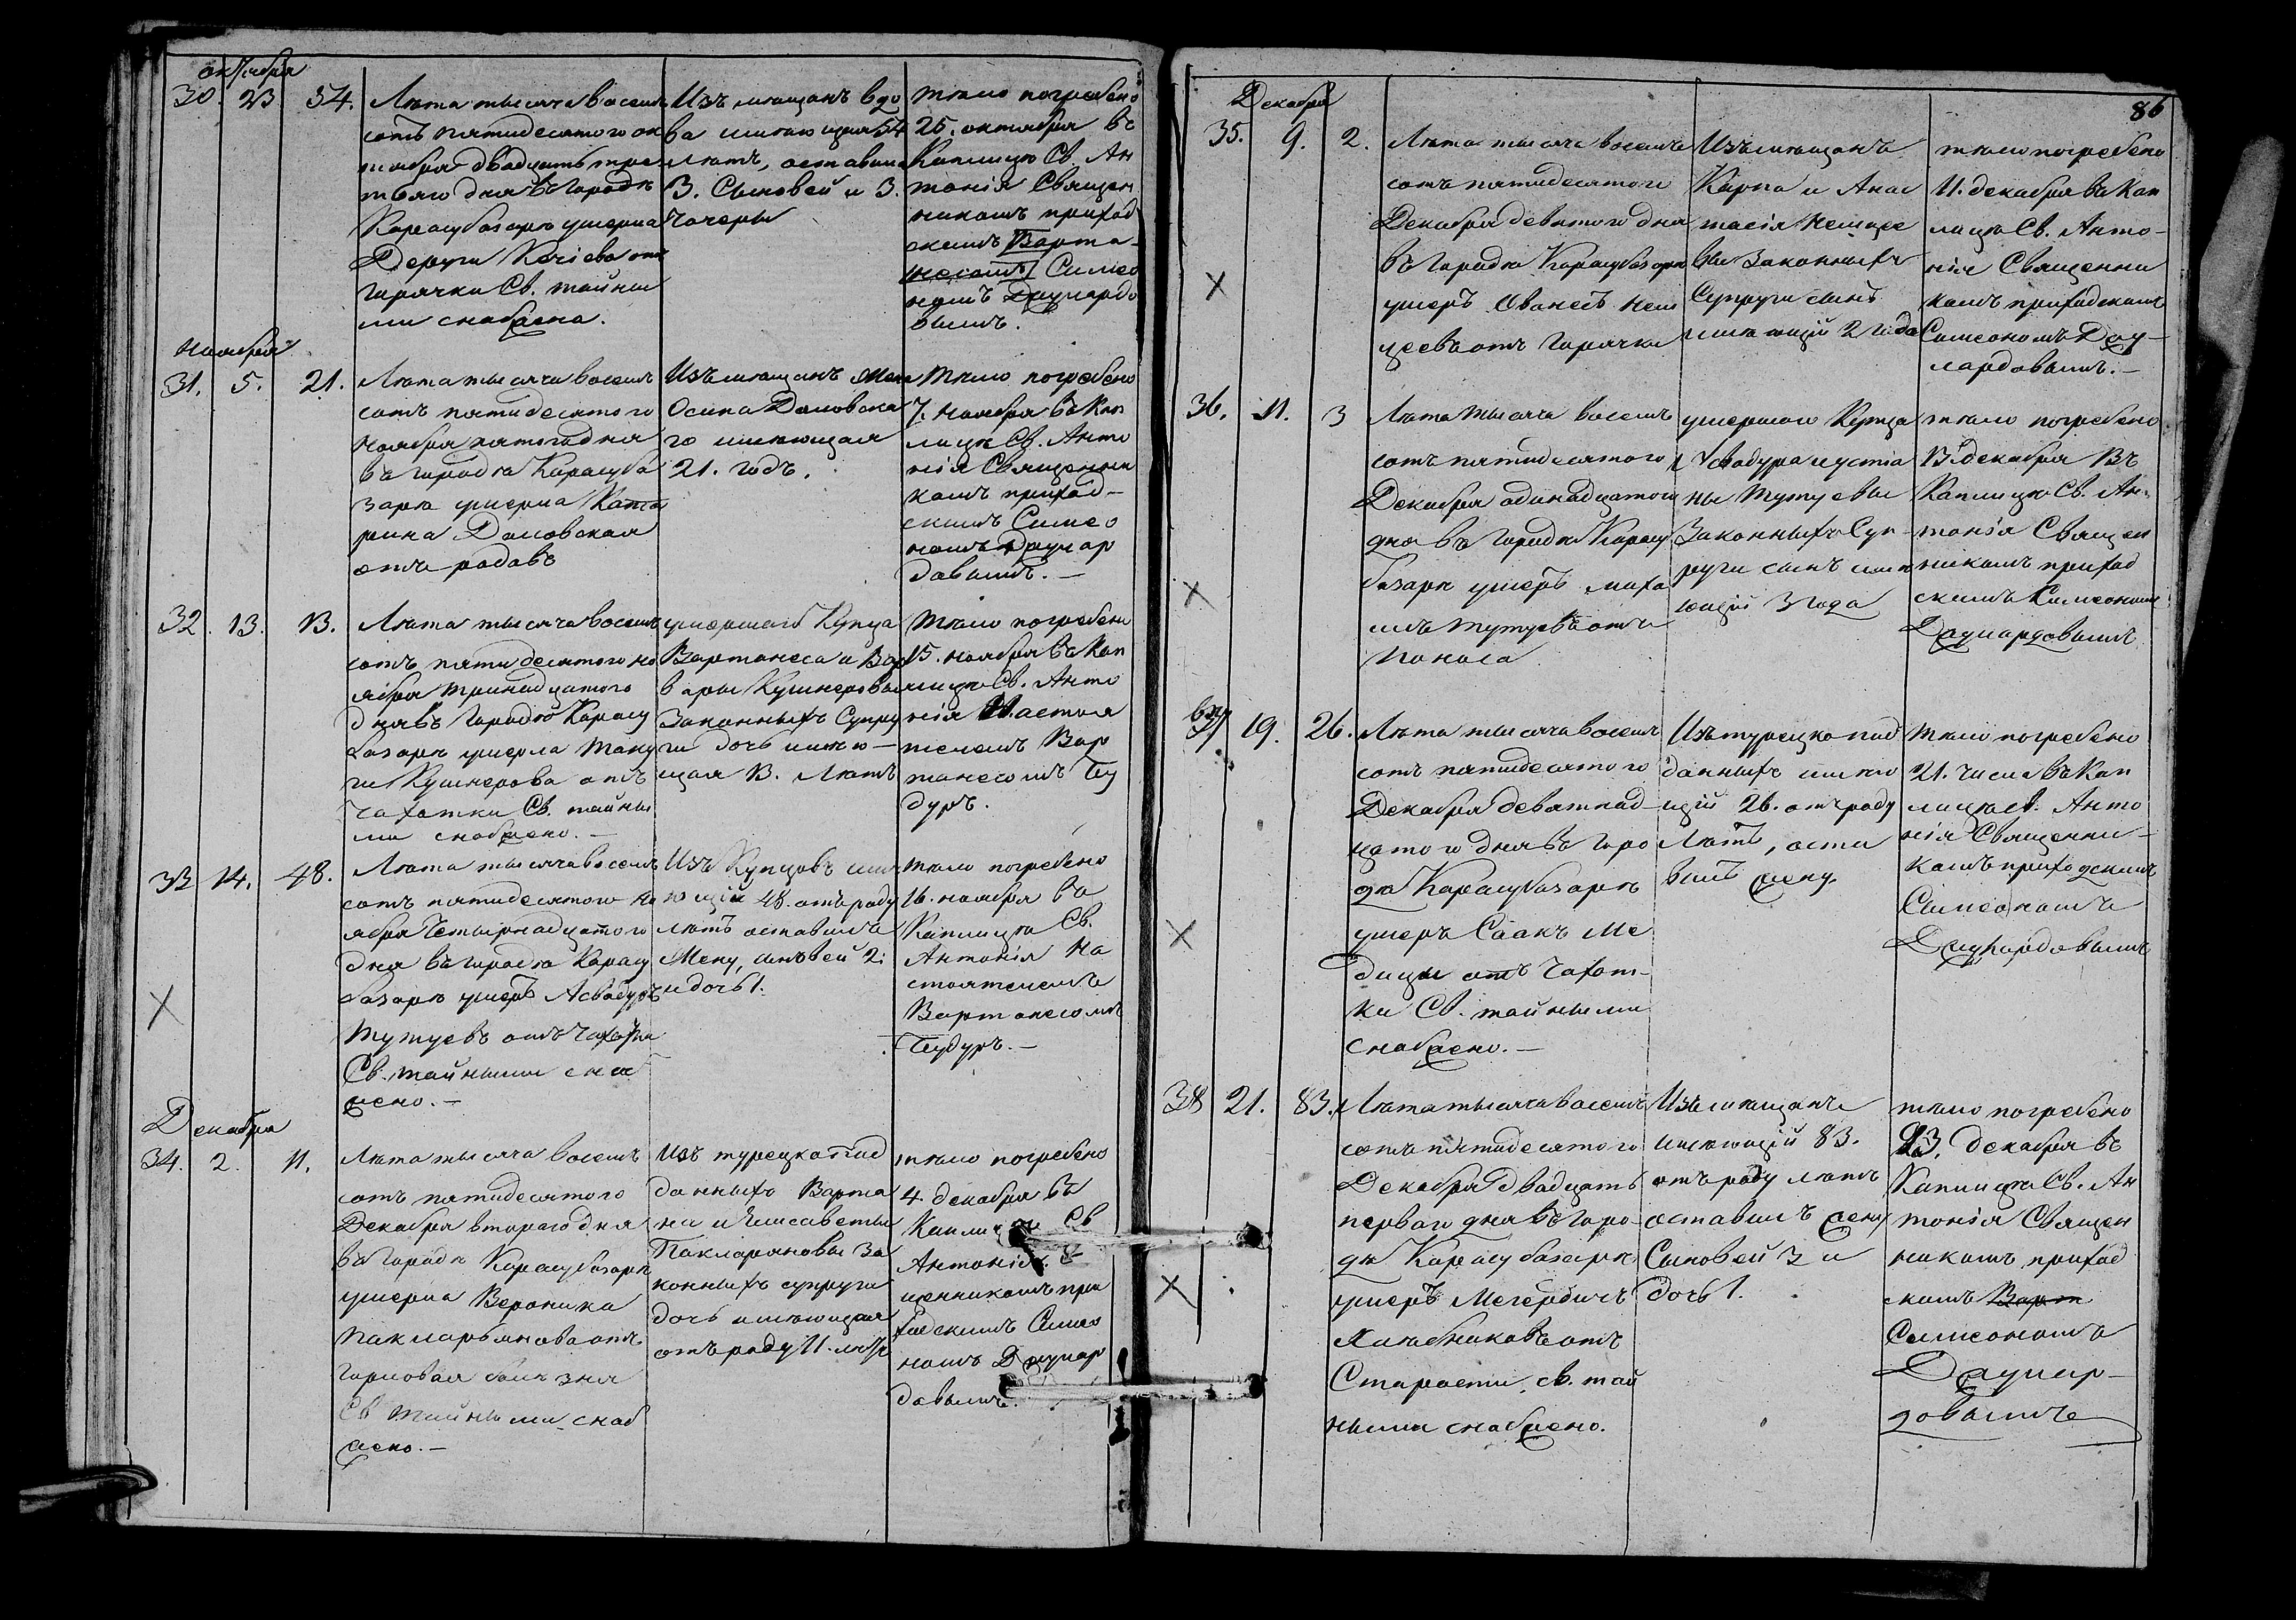 октября
30. 23. 54.
Лѣта тысяча восемь
сотъ пятидесятого ок
тября двадцать тре
тьяго дня въ городѣ
Карасубазарѣ умерла
отъ
горячки Св. тайны
ми снабжена.
Изъ мѣщанъ вдо
ва имѣющая 54
лѣтъ, оставила
3. Сыновей и 3.
дочеры
тѣло погребено
25. октября въ
Каплицѣ Св. Ан
тонія Священ
никомъ приход
скимъ Варта-
несомъ Симео
номъ
вымъ.
Ноября
31. 5. 21.
Лѣта тысяча восемь
сотъ пятидесятого
Ноября пятого дня
въ городѣ Карасуба
зарѣ умерла Кате
рина Доловская
отъ родовъ
Изъ мѣщанъ жена
Осипа Доловска
го имѣющая
21. годъ.
тѣло погребено
7. Ноября въ Кап
лицѣ Св. Анто
нія Священни
комъ приход-
скимъ Симео
номъ Даунар
довымъ.-
32. 13. 13.
Лѣта тысяча восемь
сотъ пятидесятого но
ября тринадцатого
дня въ городѣ Карасу
базарѣ умерла Таку
ги Кушнерова отъ
чахотки Св. тайны
ми снабжено.-
умершаго Купца
Вартанеса и Вар
вары Кушнеровы
Законныхъ Супру
ги дочь имѣю-
щая 13. лѣтъ
тѣло погребено
15. ноября въ Кап
лицѣ Св. Анто
нія Настоя
телемъ Вар
танесомъ
дуръ.
33 14. 48.
Лѣта тысяча восемь
сотъ пятидесятого но
ября четырнадцатого
дня въ городѣ Карасу
базарѣ умеръ Асвадуръ
Тутуевъ отъ чахотки
Св. тайными снаб
жено.-
Изъ Купцовъ имѣ
ющій 48. отъ роду
лѣтъ оставилъ
Жену, сыновей 2:
и дочь 1.
тѣло погребено
16. ноября въ
Каплицѣ Св.
Антонія На
стоятелемъ
Вартанесомъ
дуръ.-
Декабря
34. 2. 11.
Лѣта тысяча восемь
сотъ пятидесятого
Декабря второго дня
въ городѣ Карасубазарѣ
умерла Вероника
Пакларьянова отъ
горловая болѣзня
Св тайными снаб
жено.-
Изъ турецкопод
данныхъ Варта
на и Елисаветы
Пакларяновы за
конныхъ супруги
дочь имѣющая
отъ роду 11. лѣтъ
тѣло погребено
4. декабря въ
Каплицѣ Св
Антонія
щенникомъ при
ходскимъ Симео
номъ Даунар
довымъ.
86
Декабря
35. 9. 2.
Лѣта тысяча восемь
сотъ пятидесятого
Декабря девятого дня
въ городѣ Карасубазарѣ
умеръ Ованесъ Нем
цевъ отъ горячки
Изъ мѣщанъ
Карпа и Анас
тасія Немце
вы Законныхъ
Супруги сынъ
имѣющій 2 года
тѣло погребено
11. декабря въ Кап
лицѣ Св. Анто-
нія Священни
комъ приходскимъ
Симеономъ Дау-
нардовымъ.-
36. 11. 3
Лѣта тысяча восемь
сотъ пятидесятого
Декабря одинадцатого
дня въ городѣ Карасу
базарѣ умеръ
Тутуевъ отъ
поноса
умершаго Купца
Тутуевы
Законныхъ Суп-
руги сынъ имѣ
ющій 3 года
тѣло погребено
13. декабря въ
Каплицѣ Св. Ан-
тонія Священ
никомъ приход
скимъ Симеономъ
Даунардовымъ
37 19. 26.
Лѣта тысяча восемь
сотъ пятидесятого
Декабря девятнад-
цатого дня въ горо
дѣ Карасубазарѣ
умеръ Саакъ Ме
дицы отъ чахот-
ки Св. тайными
снабжено.-
Изъ турецкопод
данныхъ имѣю
щій 26. отъ роду
лѣтъ, оста
вилъ жену.
тѣло погребено
21. числа въ Кап
лицѣ св. Анто
нія Священни-
комъ приходскимъ
Симеономъ
Даунардовымъ
38 21. 83.
Лѣта тысяча восемь
сотъ пятидесятого
Декабря двадцать
перваго дня въ горо-
дѣ Карасубазарѣ
умеръ Мегердичъ
Хлѣбниковъ отъ
Старости, св. тай
ными снабжено.
Изъ мѣщанъ
имѣющій 83.
отъ роду лѣтъ
оставилъ жену
Сыновей 3 и
дочь 1.
тѣло погребено
23. декабря въ
Каплицѣ Св. Ан
тонія Священ
никомъ приход
скимъ Варт
Симеономъ
Даунар-
довымъ